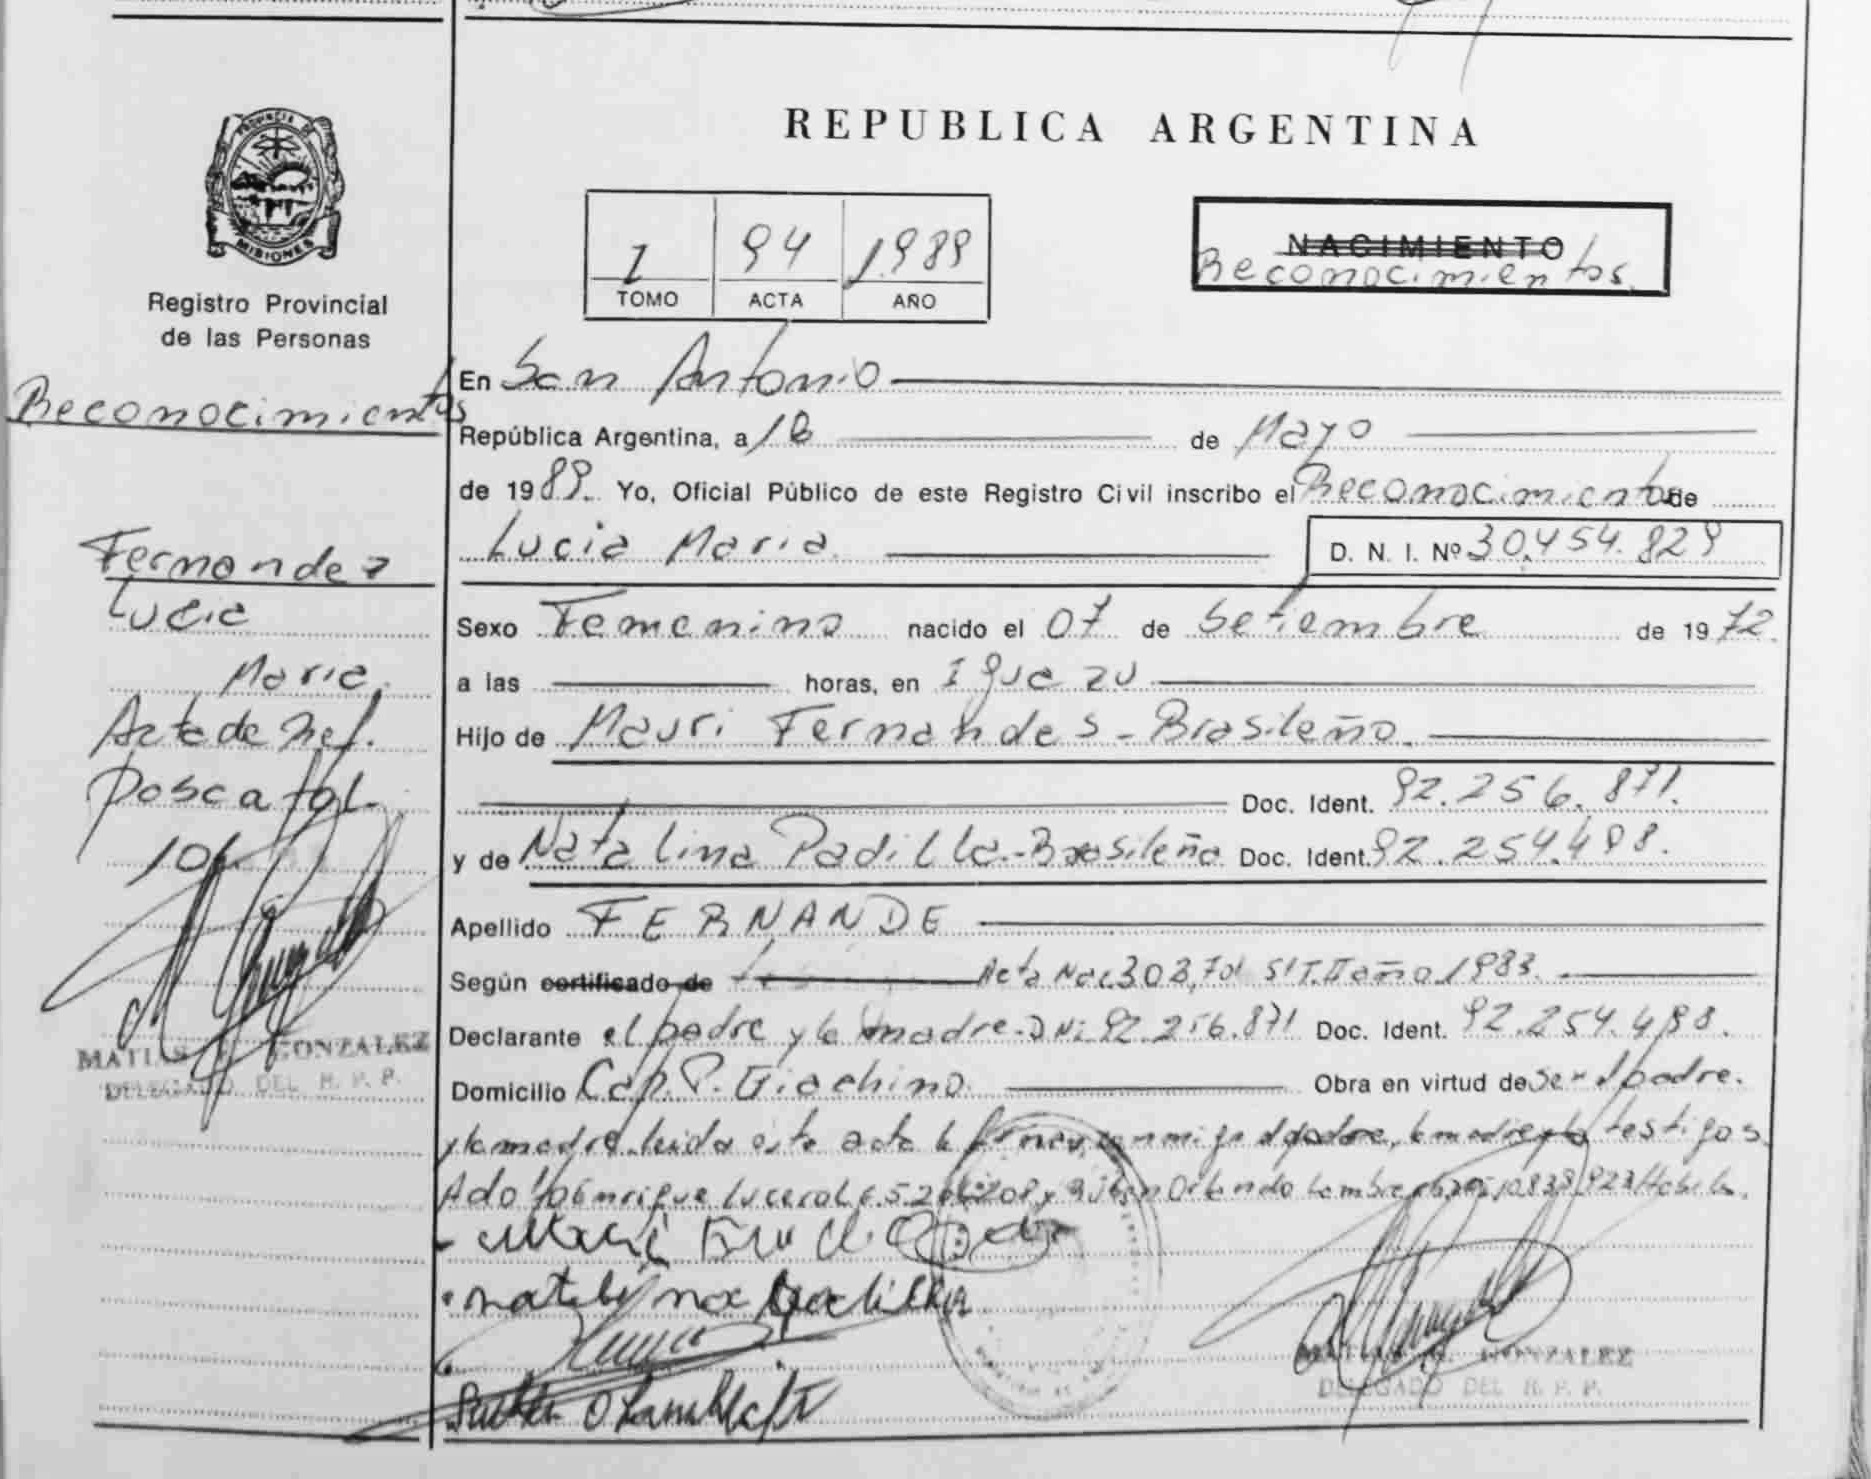 PROVINCIA DE
MISIONES
Registro Provincial
de las Personas
Reconocimientos
Fernandez
Lucia
Maria.
Acta de Nac.
Posca fol.
106
MATIAS GONZALEZ
DELEGADO DEL R. P. P.
REPUBLICA ARGENTINA
1 94 1989
TOMO ACTA AÑO
NACIMIENTO
Reconocimientos.
En San Antonio
República Argentina, a 18 de Mayo
de 1989. Yo, Oficial Público de este Registro Civil inscribo el Reconocimiento de
Lucia Maria D. N. I. Nº 30.454.829
Sexo Femenino nacido el 07 de Setiembre de 1972.
a las horas, en Iguazu
Hijo de Mauri Fernandes - Brasileño.
Doc. Ident. 92.256.871.
y de Natalina Padilla - Brasileña Doc. Ident. 92.254.498.
Apellido FERNANDE
Según certificado de Acta Nac 303, Fol 51 T. II año 1983.
Declarante el padre y la madre - DNI 92.256.871 Doc. Ident. 92.254.498.
Domicilio Cap. P. Giachino. Obra en virtud de ser el padre.
y la madre. leida esta acta la firman conmigo el padre, la madre y testigos
Adolfo Enrique Lucero y Ruben Orlando
Natalina Padilha
MATIAS GONZALEZ
DELEGADO DEL R. P. P.